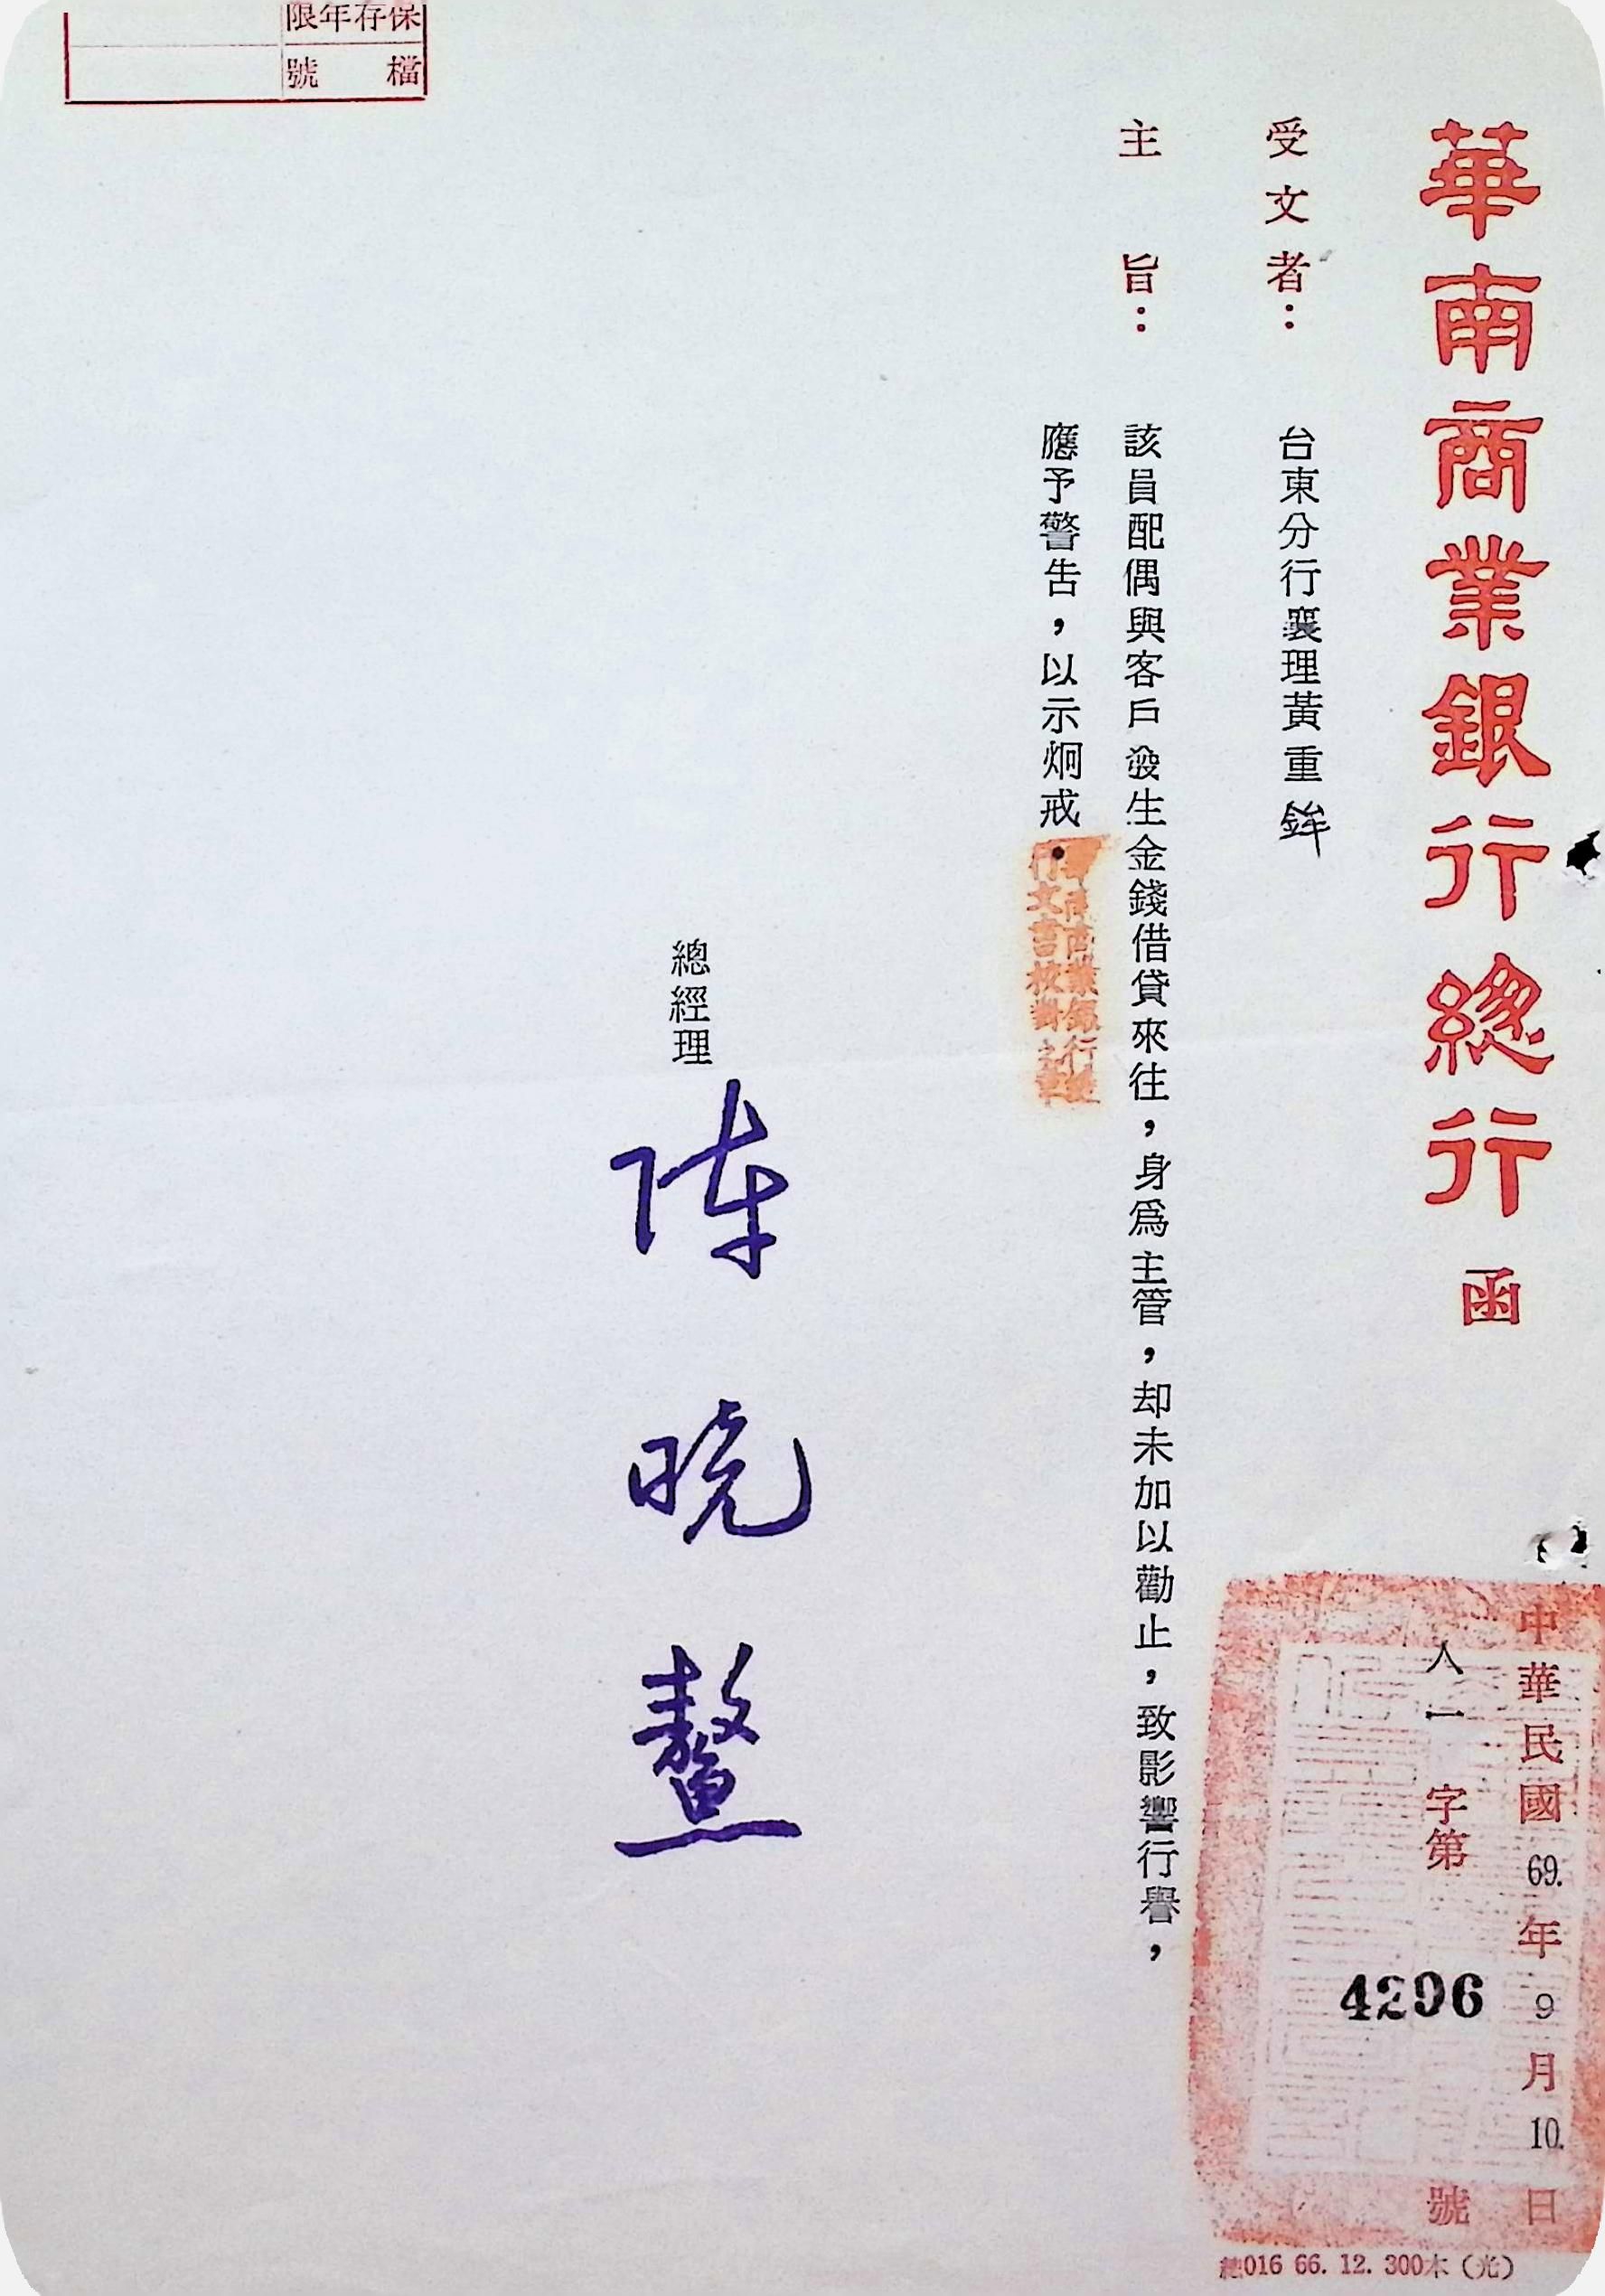 華南商業銀行總行 函
中華民國69.年9月10.日
人一字第4296號
受文者：台東分行襄理黃重鉾
主旨：該員配偶與客戶發生金錢借貸來往，身爲主管，却未加以勸止，致影響行譽，
應予警告，以示烱戒．
華南商業銀行總
行文書校對之章
總經理 陳晓鰲
保存年限
檔號
總016 66. 12. 300本（光）